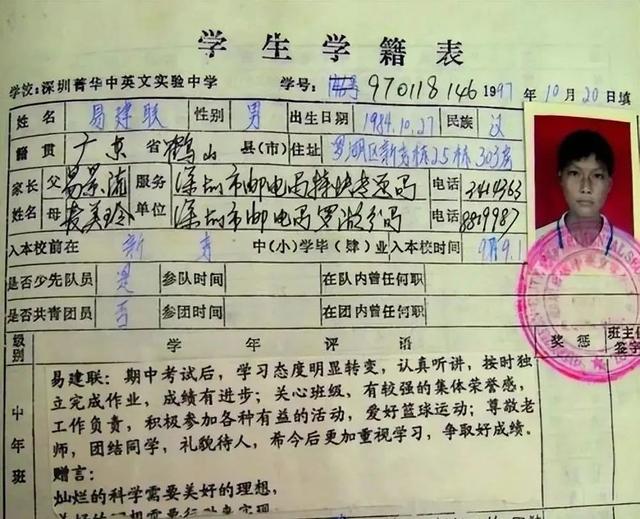 学生学籍表
学校:深圳菁华中英文实验中学 学号: 970118146 1997年10月20日填
姓名 易建联 性别 男 出生日期 1984.10.27 民族 汉
籍贯 广东省鹤山县(市) 住址 罗湖区新秀村25栋303房
家长 父 易景流 服务 深圳市邮电局特快专递局 电话
母 麦美玲 单位 深圳市邮电局罗湖分局 电话 8819987
入本校前在 新秀 中(小)学毕(肆)业 入本校时间 97.9.1
是否少先队员 是 参队时间 在队内曾任何职
是否共青团员 否 参团时间 在团内曾任何职
级别 学年评语 奖惩 班主任签字
中年班
易建联:期中考试后,学习态度明显转变,认真听讲,按时独
立完成作业,成绩有进步;关心班级,有较强的集体荣誉感,
工作负责,积极参加各种有益的活动,爱好篮球运动;尊敬老
师,团结同学,礼貌待人,希今后更加重视学习,争取好成绩。
赠言:
灿烂的科学需要美好的理想,